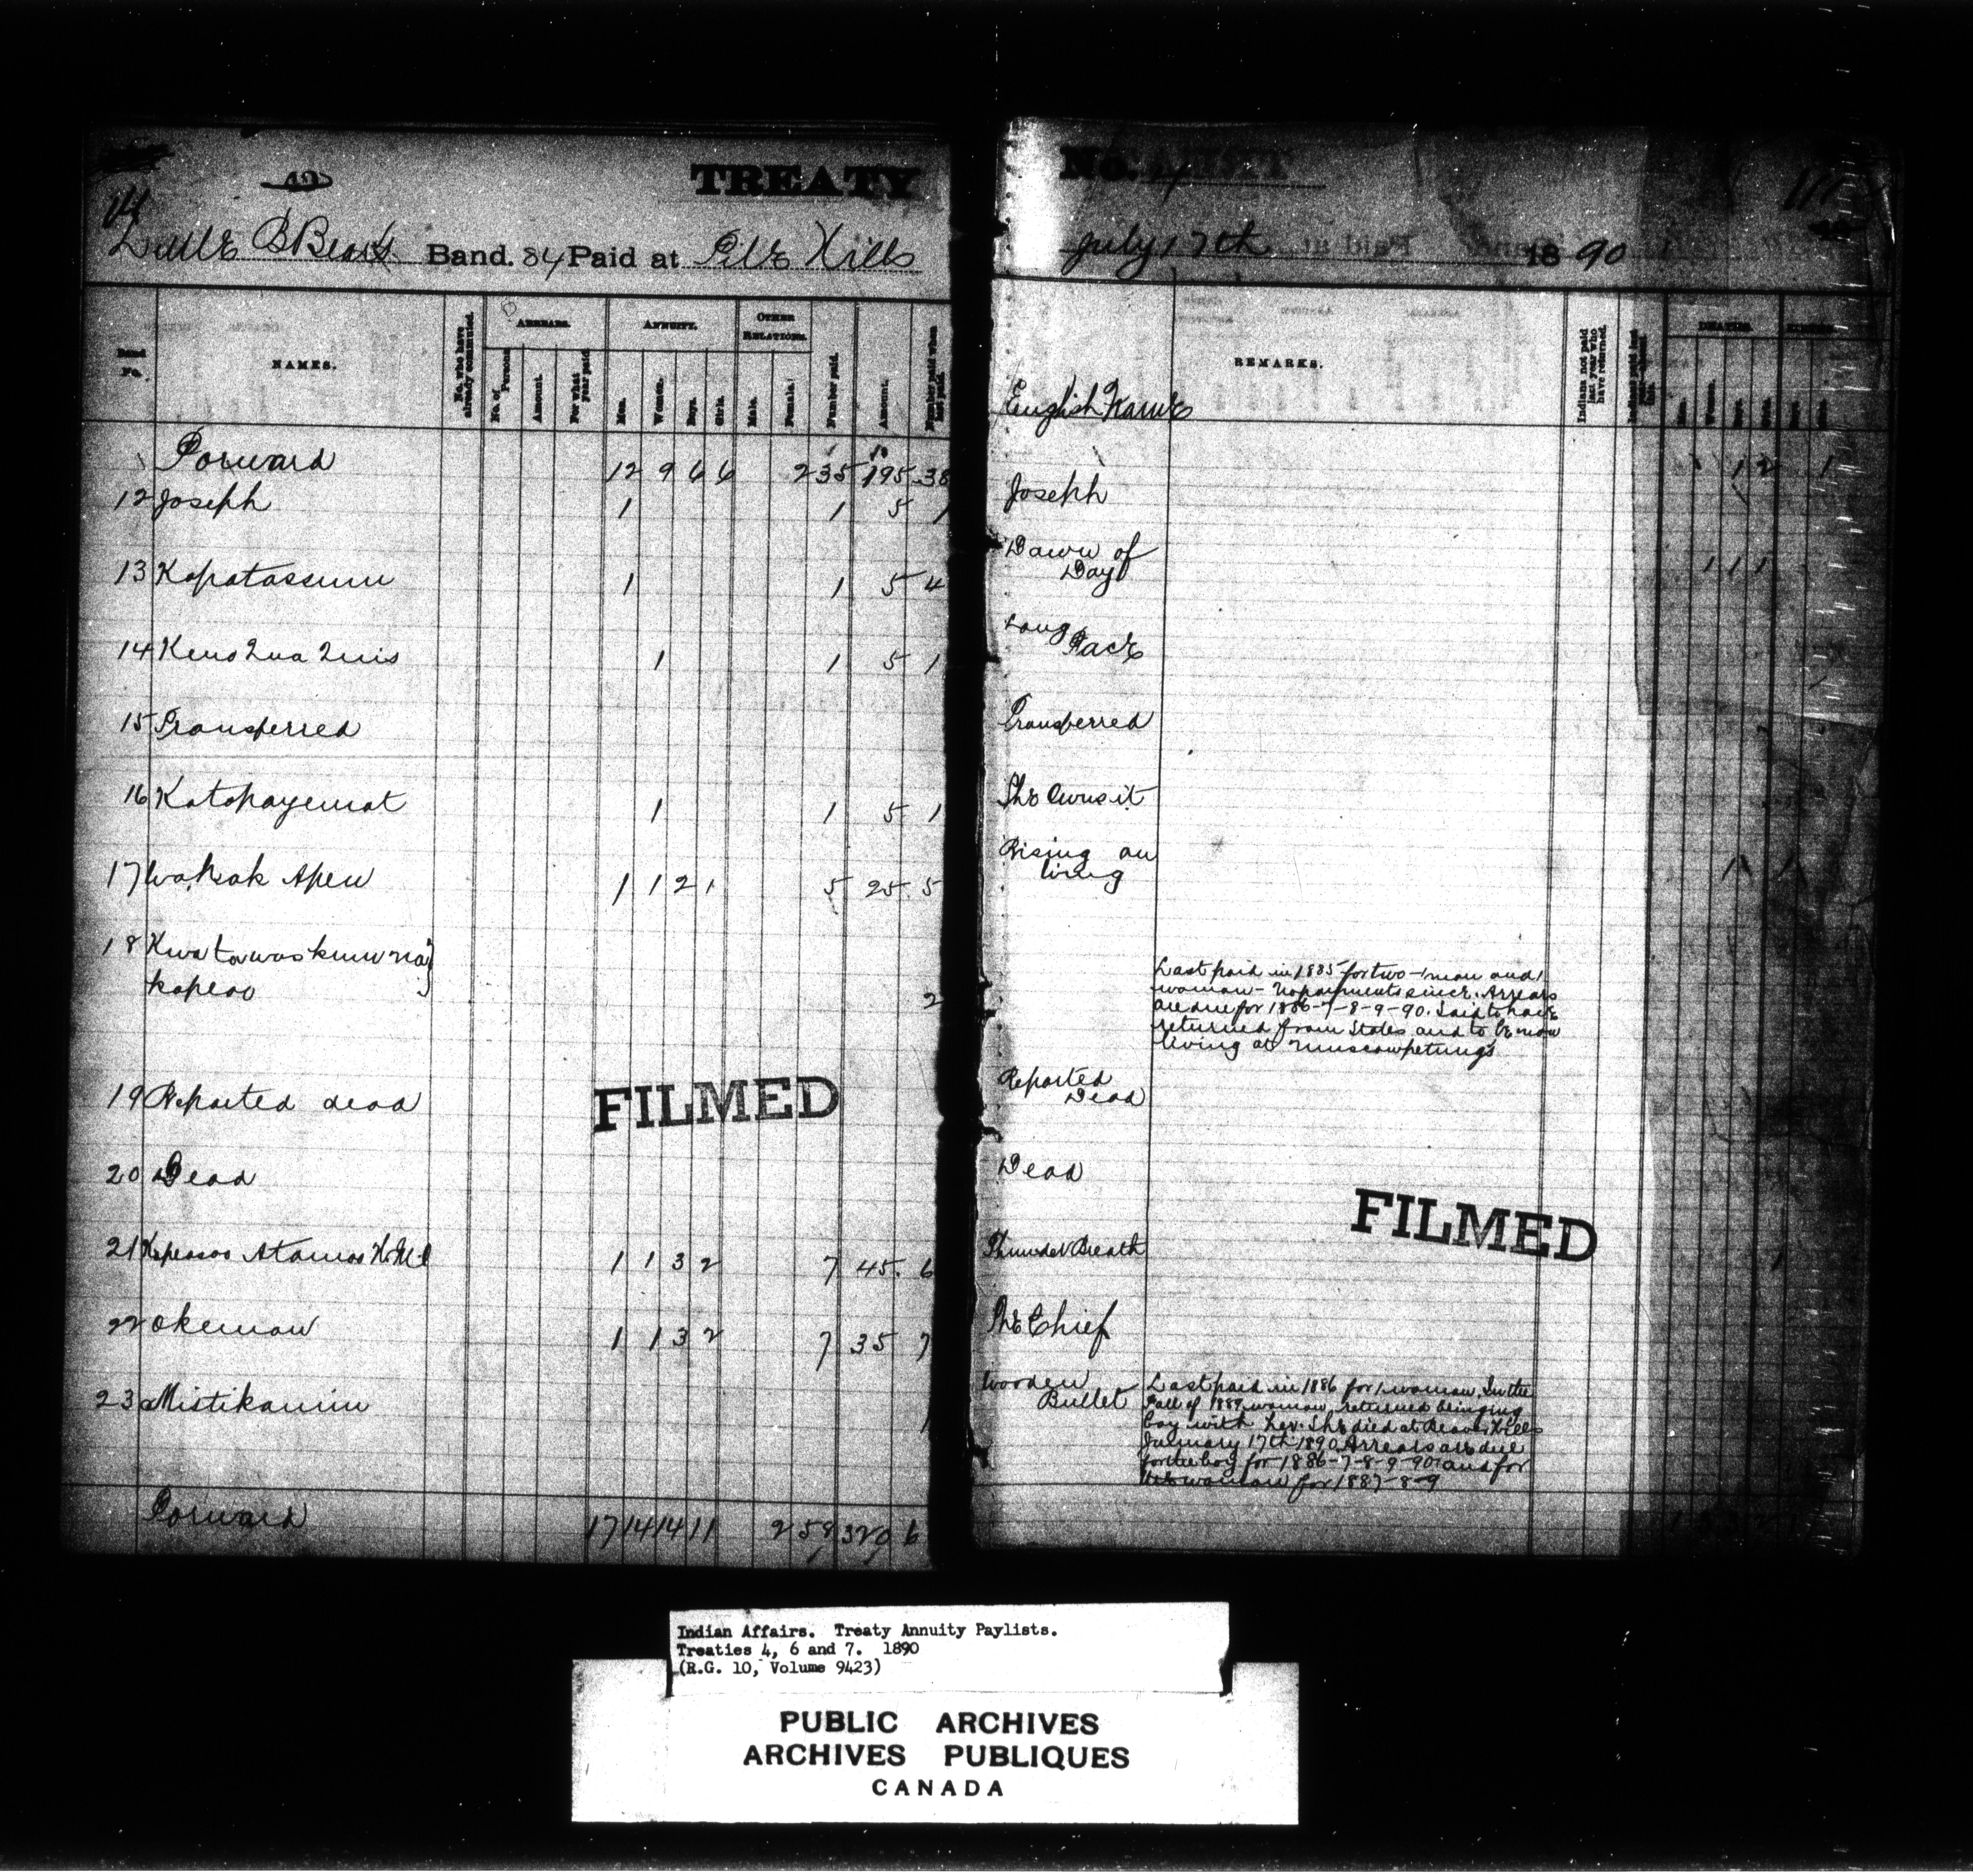 TREATY
No. 4
111
14
Little B Bears Band. 84 Paid at File Hills
July 17th 1890
Band No.
NAMES.
No. who have already commuted.
ARREARS.
No. of Persons
Amount.
For what year paid
ANNUITY.
Men.
Women.
Boys.
Girls.
OTHER RELATIONS.
Male.
Female.
Number paid.
Amount.
Number paid when last paid.
English Name
REMARKS.
Indians not paid last year who have returned.
DEATHS.
Forward 12 9 6 6 2 35 195. 38
12 Joseph 1 1 5 1 Joseph
13 Kapatassum 1 1 5 4 Dawn of
Day
14 Keno Qua Quis 1 1 5 1 Long
Face
15 Transferred Transferred
16 Katapayemat 1 1 5 1 She Owns it
17 Wa.Kak Apew 1 1 2 1 5 25. 5 Rising on
Wing
18 Kwatawaskum na
kapeoo 2
Last paid in 1885 for two - 1 man and 1
woman - No payments since. Arrears
are due for 1886-7-8-9-90. Said to have
returned from States and to be now
living at Muscowpetungs
19 Reported dead Reported
Dead
20 Dead Dead
21 Kapeasoo Atamos H.M. 1 1 3 2 7 45. 6 Thunder Breath
22 Okemow 1 1 3 2 7 35 7 The Chief
23 Mistikanim 1 Wooden
Bullet
Last paid in 1886 for 1 woman. In the
Fall of 1889 woman returned bringing
boy with her. She died at Beaver Hills
January 17th 1890. Arrears are due
for the boy for 1886-7-8-9-90 and for
the woman for 1887-8-9
Forward 17 14 14 11 2 59 320 6
FILMED
FILMED
Indian Affairs. Treaty Annuity Paylists.
Treaties 4, 6 and 7. 1890
(R.G. 10, Volume 9423)
PUBLIC ARCHIVES
ARCHIVES PUBLIQUES
CANADA